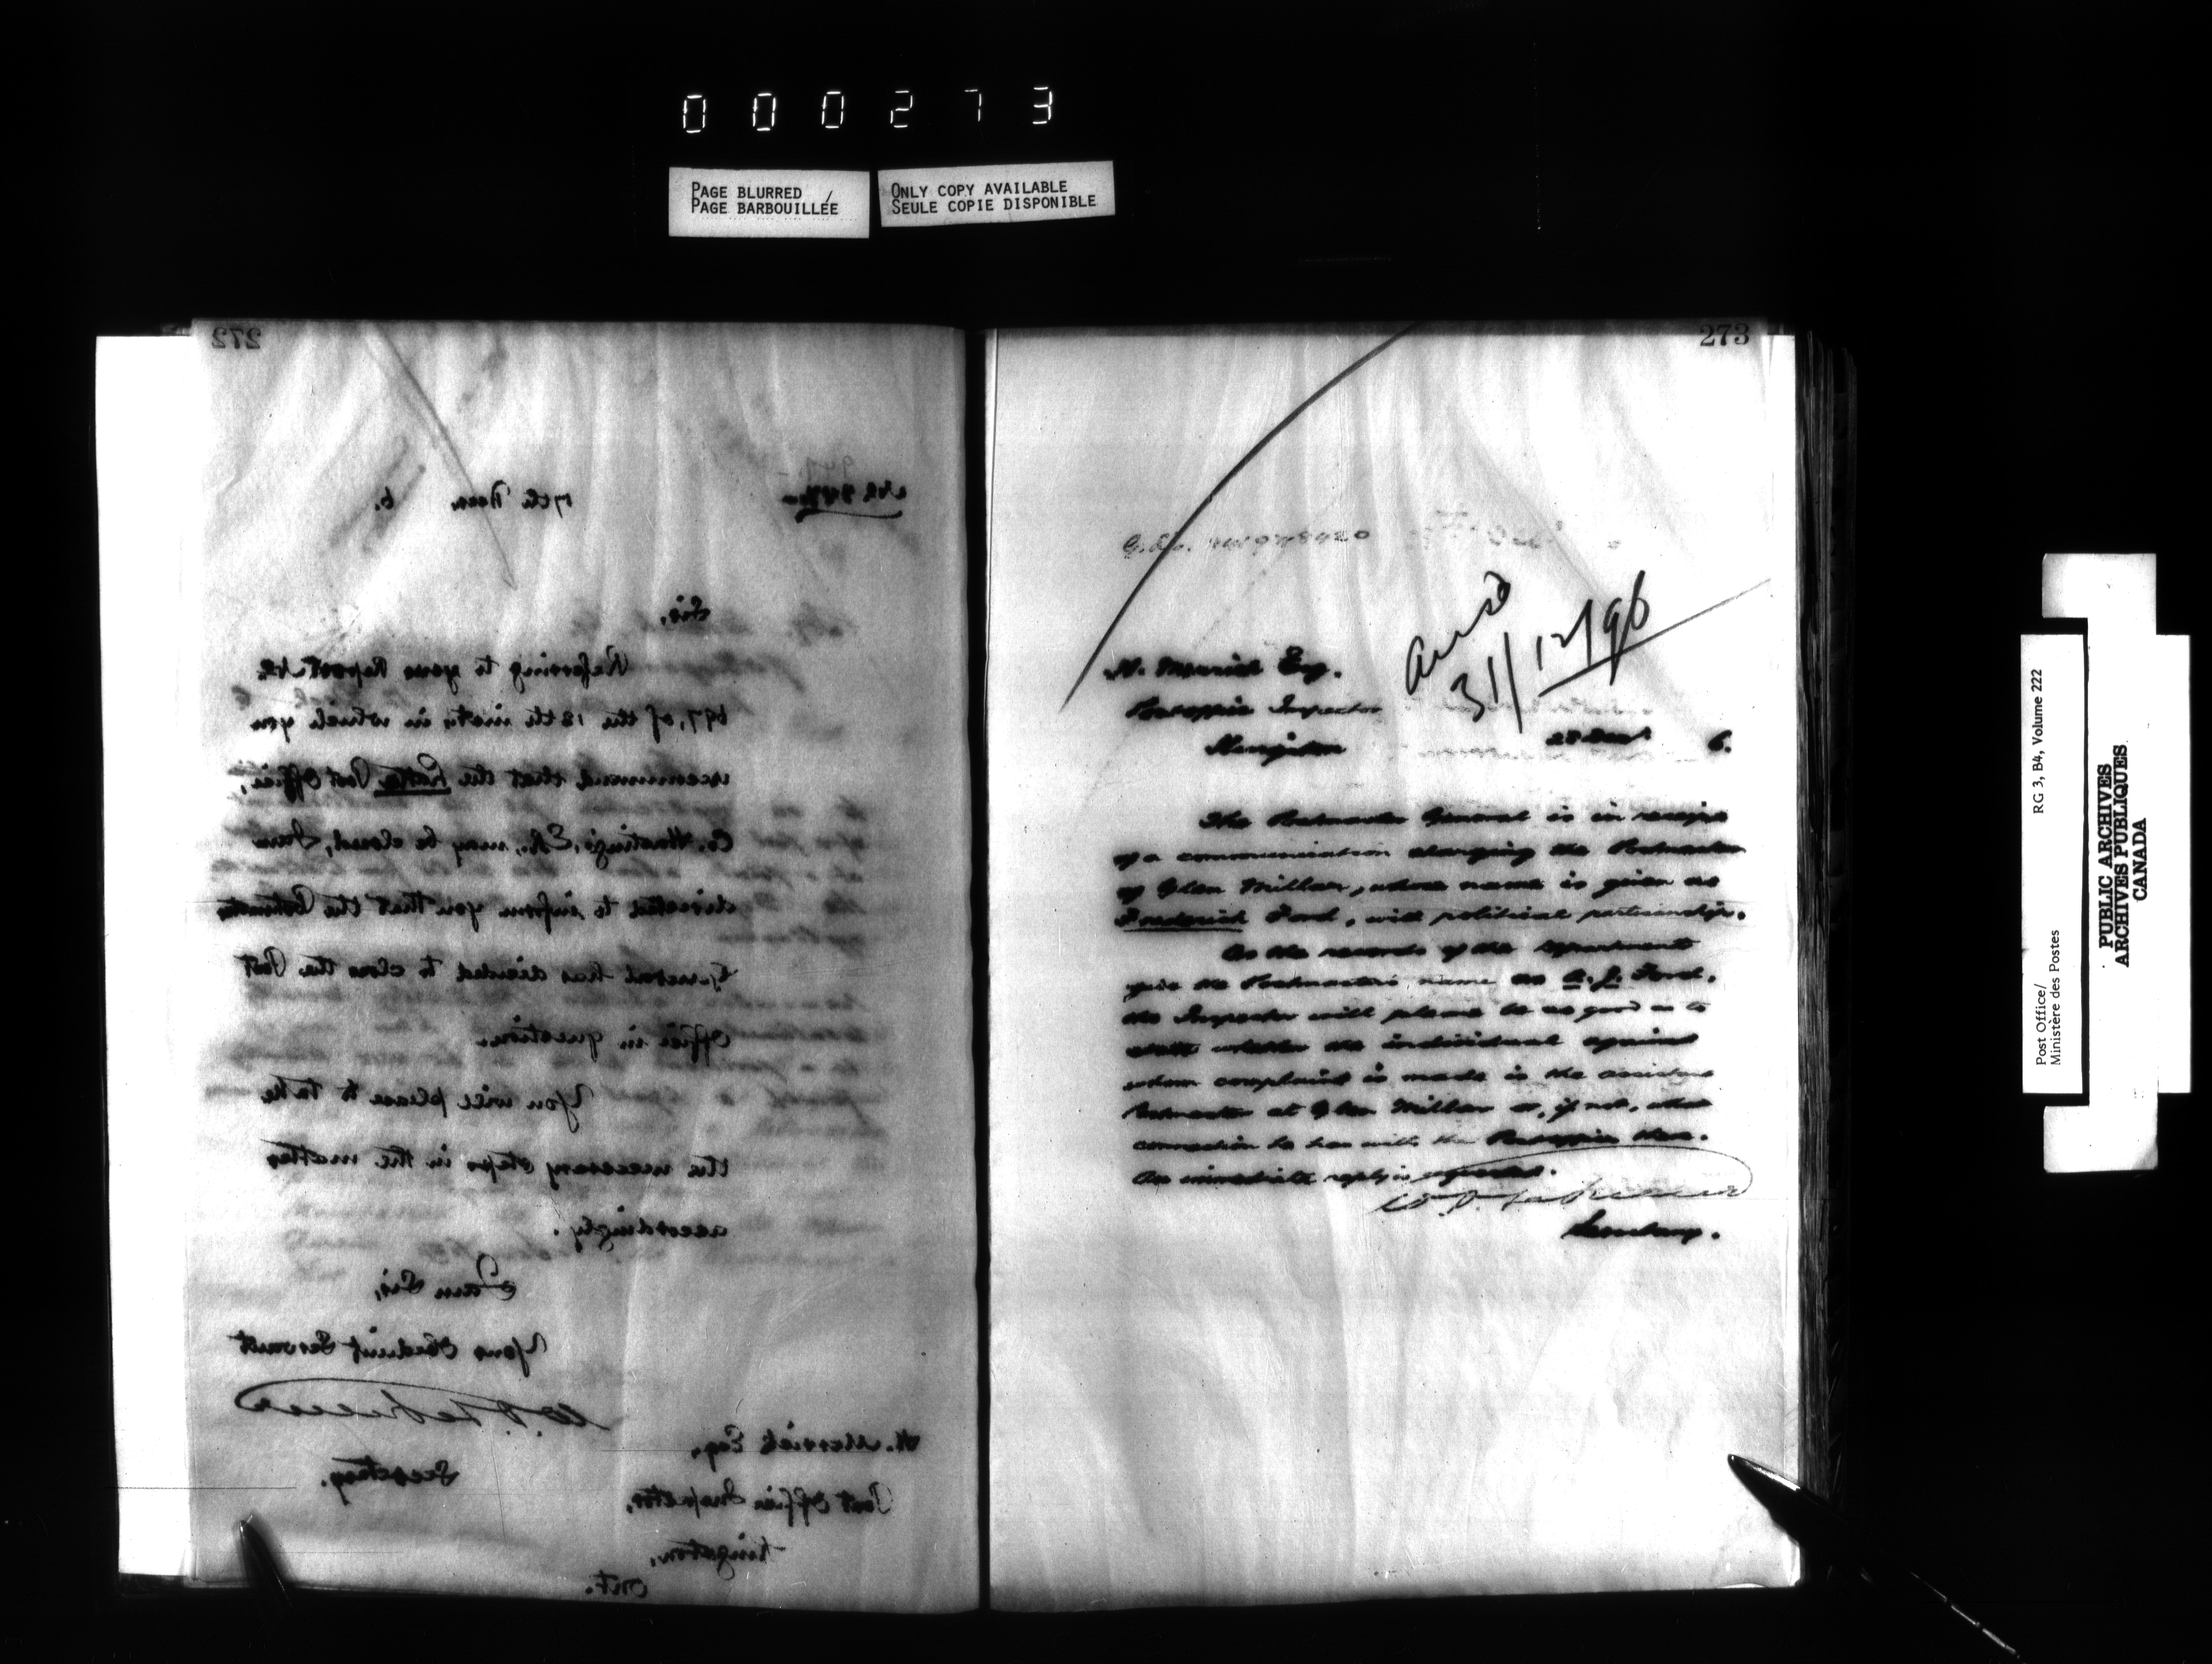 000273
PAGE BLURRED
PAGE BARBOUILLÉE
ONLY COPY AVAILABLE
SEULE COPIE DISPONIBLE
272
17th 6.
Sir,
Referring to your Report No.
697, of the 12th insty in which you
recommend that the Post Office,
Co. Hastings, E.R., may be closed, I am
directed to inform you that the Postmaster
General has decided to close the Post
Office in question.
You will please to take
the necessary steps in the matter
accordingly.
I am Sir,
Your Obedient Servant
Secretary.
H. Merrick Esq.
Post Office Inspector,
Kingston,
Ont.
273
Ansd
31/12/96
H. Merrick Esq.
Postoffice Inspector
Kingston
28 Decr 6.
The Postmaster General is in receipt
of a communication charging the Postmaster
of Glen Miller, whose name is given as
Frederick Ford, with political partisanship.
As the records of the department
give the Postmaster's name as A. J. Ford,
the Inspector will please be as good as to
state whether the individual against
whom complaint is made is the assistant
Postmaster at Glen Miller or, if not, what
connection he has with the Postoffice there.
An immediate reply is requested.
Secretary.
Post Office/
Ministère des Postes
RG 3, B4, Volume 222
PUBLIC ARCHIVES
ARCHIVES PUBLIQUES
CANADA